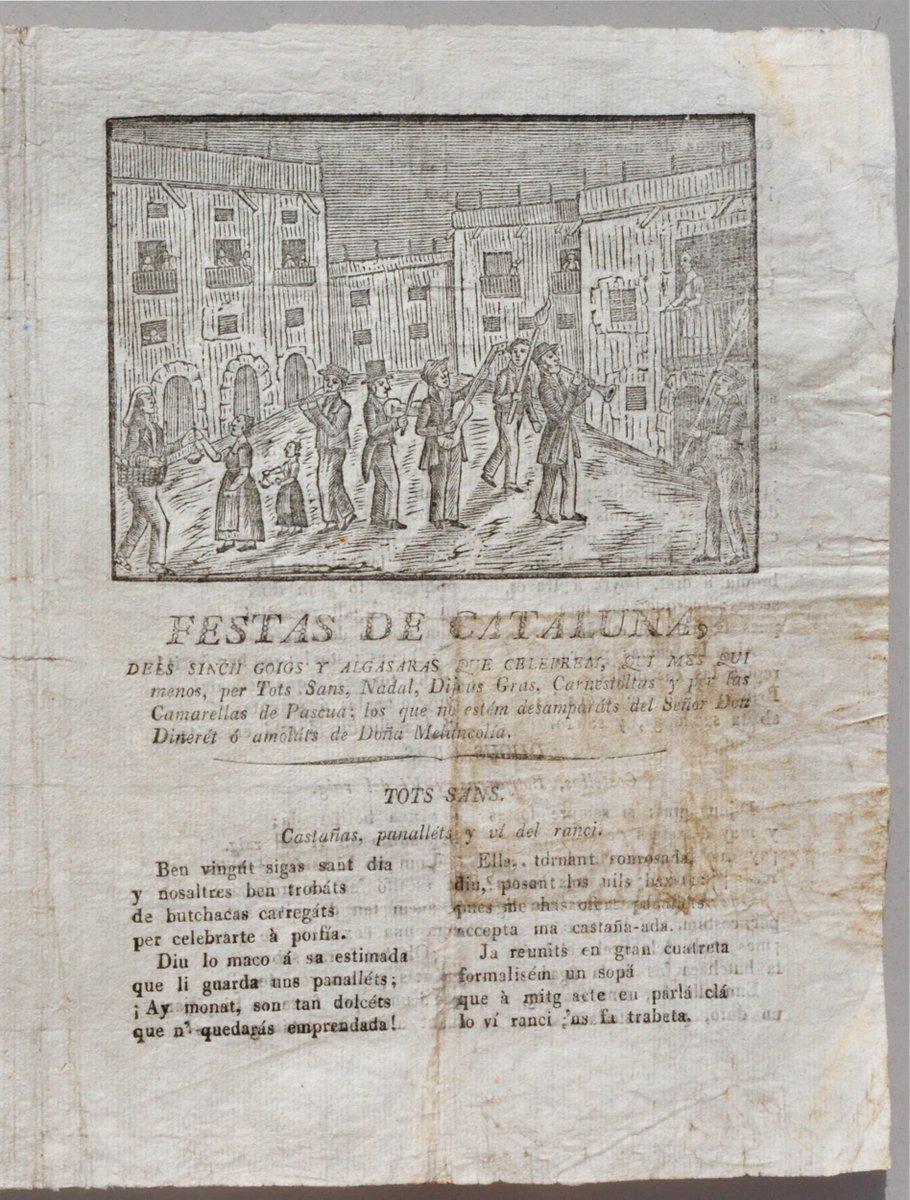 FESTAS DE CATALUÑA,
DELS SINCH GOIGS Y ALGASARAS QUE CELEBREM, QUI MES QUI
menos, per Tots Sans, Nadal, Dijous Gras, Carnestoltas y per las
Camarellas de Pascua; los que no estém desamparáts del Señor Don
Dinerét ó amoláts de Doña Melancolía.
TOTS SANS.
Castañas, panalléts y ví del ranci.
Ben vingút sigas sant dia
y nosaltres ben trobáts
de butchacas carregáts
per celebrarte à porfía.
Diu lo maco á sa estimada
que li guarda uns panalléts;
¡Ay monat, son tan dolcéts
que n' quedarás emprendada!
Ella, tornant sonrosada,
diu, posant los ulls
pues me has
accepta ma castaña-ada.
Ja reunits en gran cuatreta
formalisém un sopá
que à mitg acte en parlá clá
lo ví ranci 'ns fa trabeta.